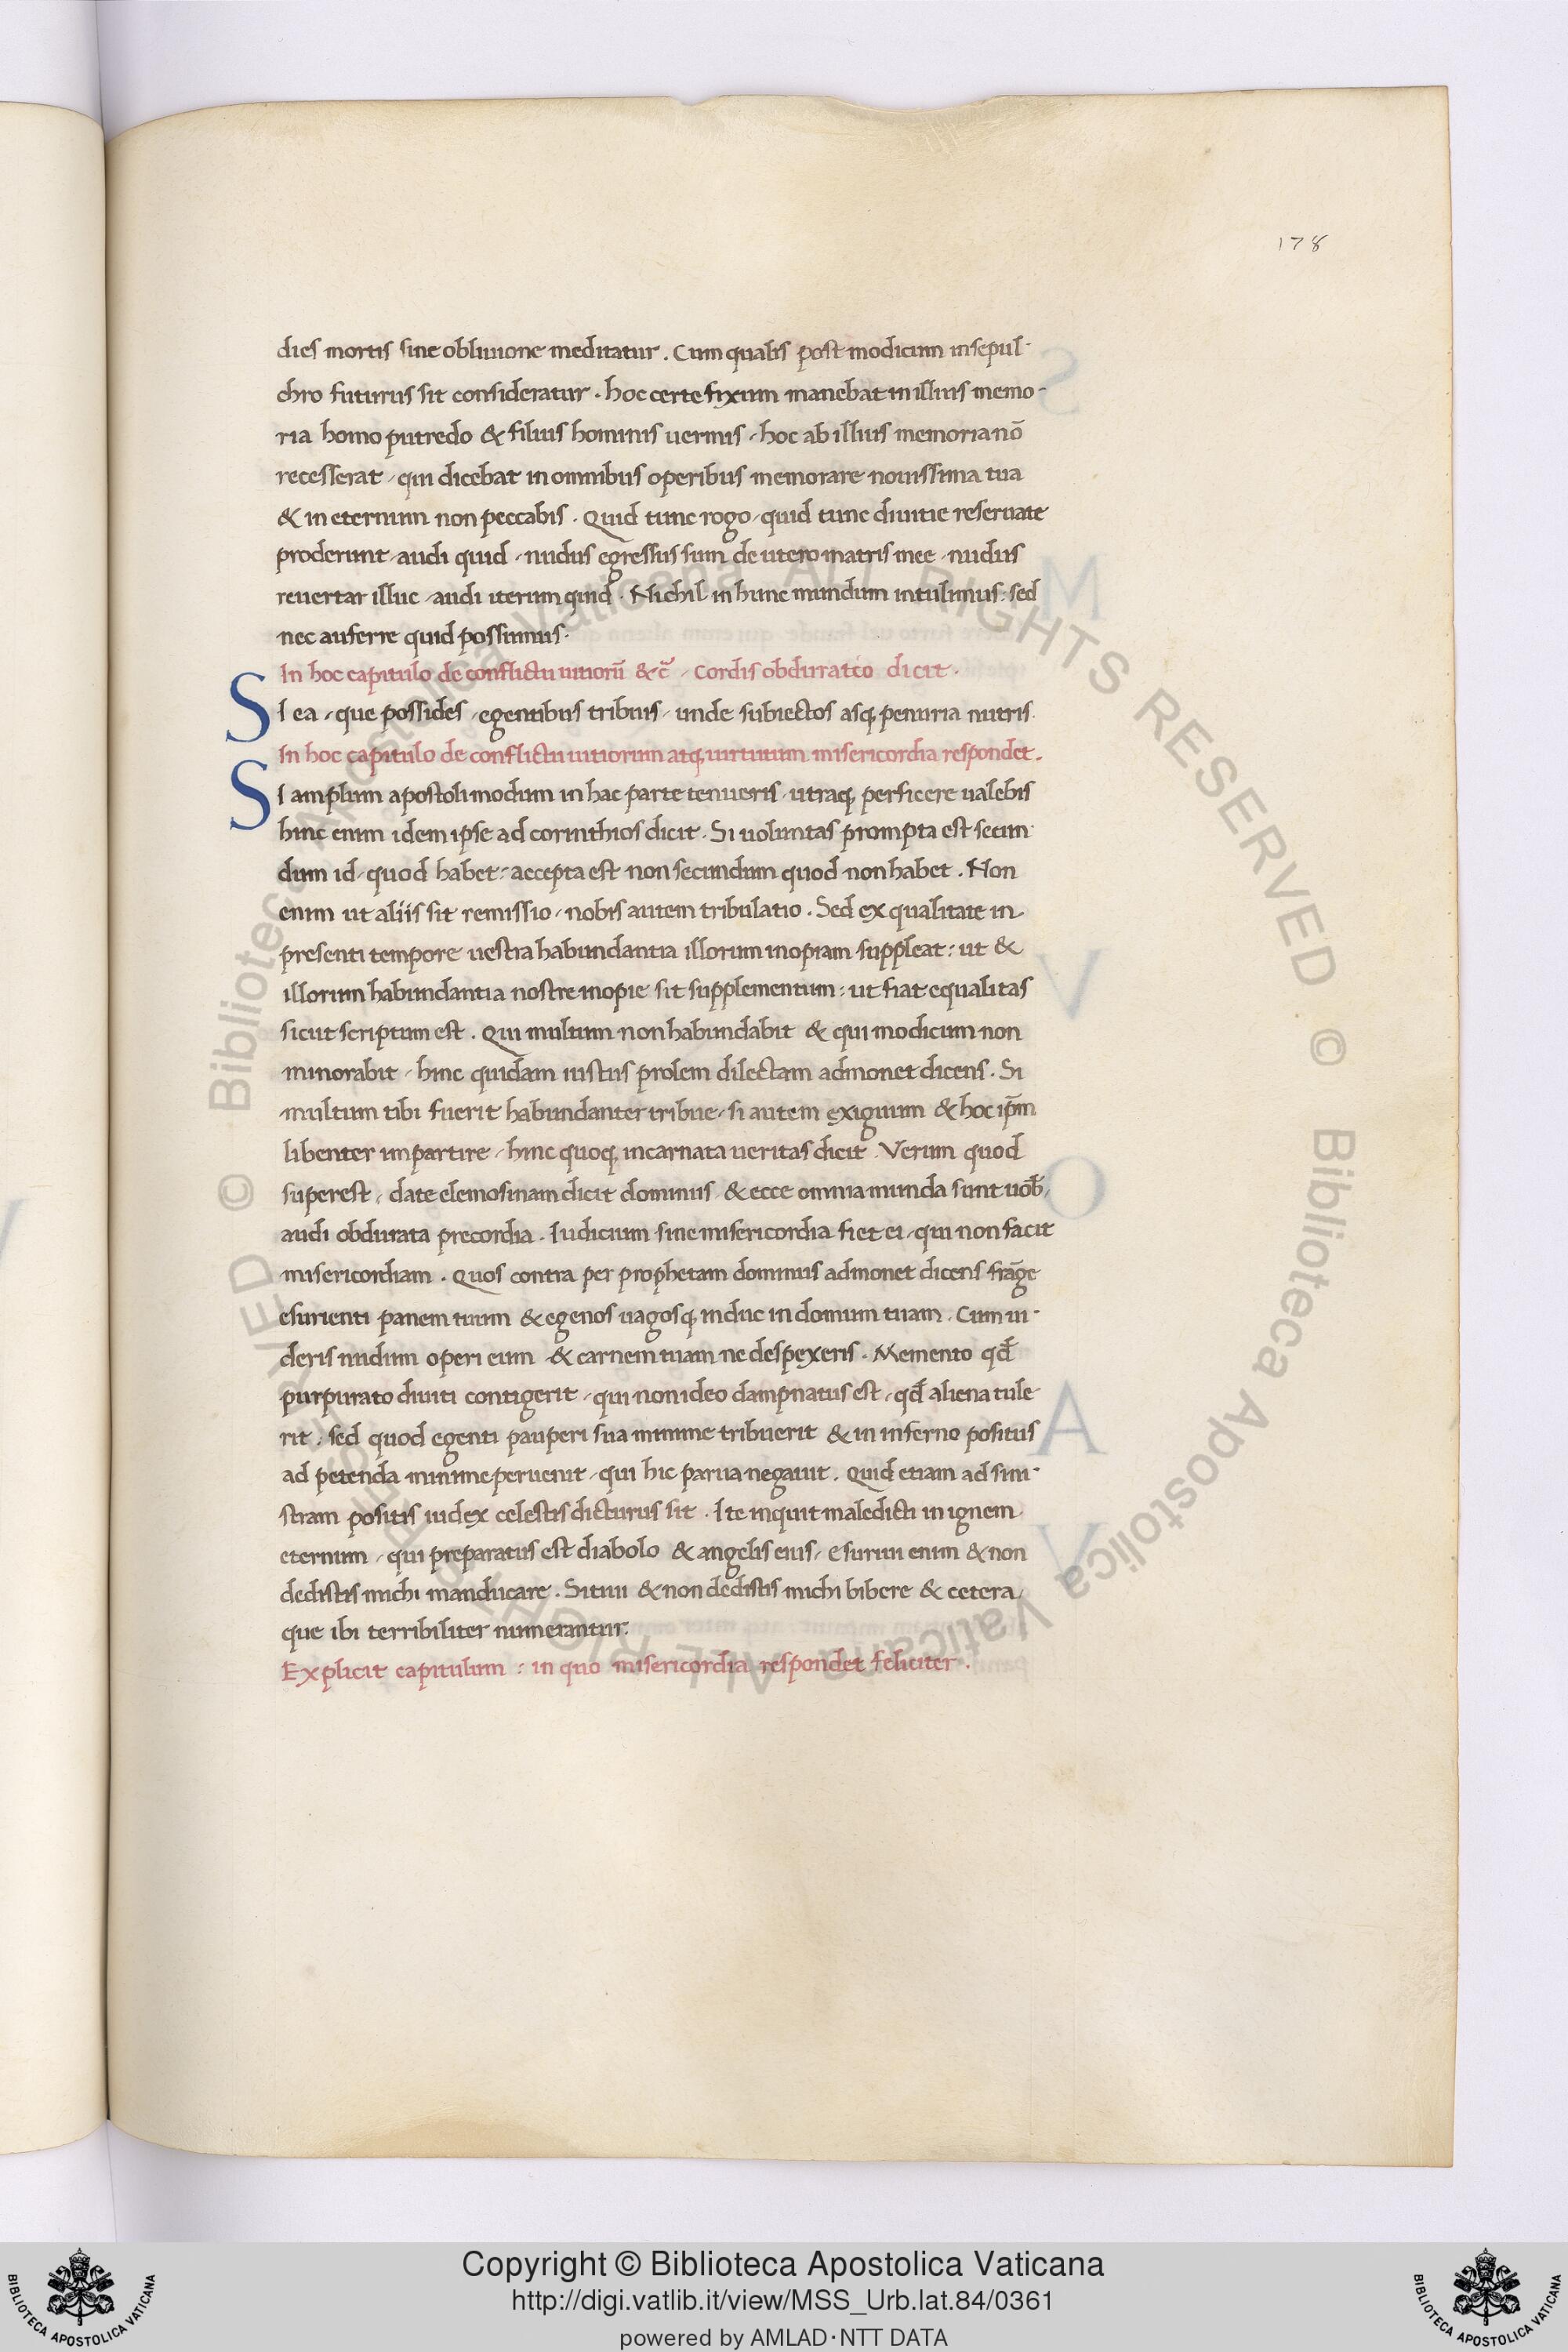 178
dies mortis sine obliuione meditatur. Cum qualis post modicum in sepul-
chro futurus sit consideratur. hoc certe fixum manebat in illius memo-
ria homo putredo & filius hominis uermis, hoc ab illius memoria nō
recesserat, qui dicebat in omnibus operibus memorare nouissima tua
& in eternum non peccabis. Quid tunc rogo, quid tunc diuitie reseruate
proderunt, audi quid, nudus egressus sum de utero matris mee, nudus
reuertar illuc, audi iterum quid. Nichil in hunc mundum intulimus: sed
nec auferre quid possumus.
In hoc capitulo de conflictu uitiorū & c̄, cordis obduratio dicit.
SI ea, que possides, egentibus tribuis, unde subiectos asq; penuria nutris.
In hoc capitulo de conflictu uitiorum atq; uirtutum misericordia respondet.
SI amplum apostoli modum in hac parte tenueris, utraq; perficere ualebis
hinc enim idem ipse ad corinthios dicit. Si uoluntas prompta est secun-
dum id, quod habet: accepta est non secundum quod non habet. Non
enim ut aliis sit remissio, nobis autem tribulatio. Sed ex qualitate in
presenti tempore uestra habundantia illorum inopiam suppleat: ut &
illorum habundantia nostre inopie sit supplementum: ut fiat equalitas
sicut scriptum est. Qui multum non habundabit & qui modicum non
minorabit, hinc quidam iustus prolem dilectam admonet dicens. Si
multum tibi fuerit habundanter tribue, si autem exiguum & hoc ip̄m
libenter impartire, hinc quoq; incarnata ueritas dicit. Verum quod
superest, date elemosinam dicit dominus, & ecce omnia munda sunt uob̄,
audi obdurata precordia. Iudicium sine misericordia fiet ei, qui non facit
misericordiam. Quos contra per prophetam dominus admonet dicens frāge
esurienti panem tuum & egenos uagosq; induc in domum tuam. Cum ui-
deris nudum operi eum & carnem tuam ne despexeris. Memento qd̄
purpurato diuiti contigerit, qui non ideo dampnatus est, qd̄ aliena tule-
rit: sed quod egenti pauperi sua minime tribuerit & in inferno positus
ad petenda minime peruenit, qui hic parua negauit. Quid etiam ad sini-
stram positis iudex celestis dicturus sit. Ite inquit maledicti in ignem
eternum, qui preparatus est diabolo & angelis eius, esuriui enim & non
dedistis michi manducare. Sitiui & non dedistis michi bibere & cetera,
que ibi terribiliter numerantur.
Explicit capitulum: in quo misericordia respondet feliciter.
© Biblioteca Apostolica Vaticana ALL RIGHTS RESERVED © Biblioteca Apostolica Vaticana ALL RIGHTS RESERVED
Copyright © Biblioteca Apostolica Vaticana
http://digi.vatlib.it/view/MSS_Urb.lat.84/0361
powered by AMLAD·NTT DATA
BIBLIOTECA APOSTOLICA VATICANA
BIBLIOTECA APOSTOLICA VATICANA